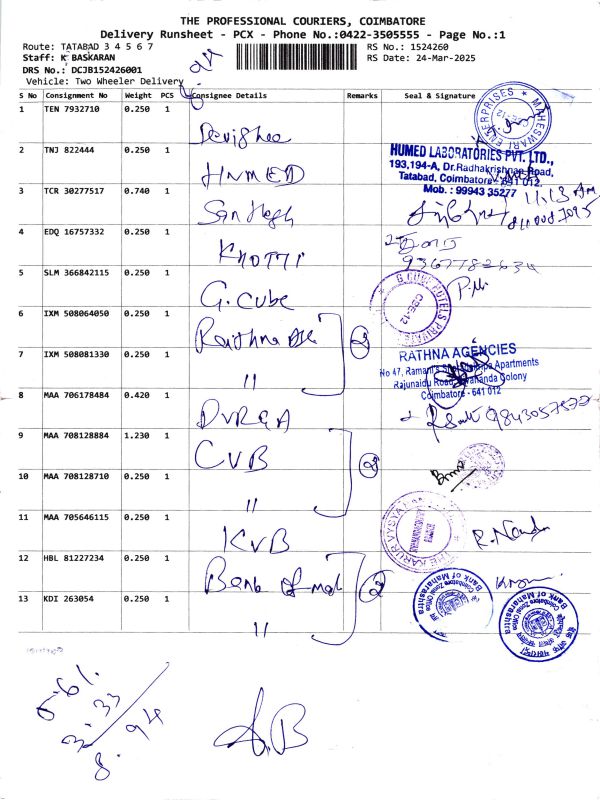 THE PROFESSIONAL COURIERS, COIMBATORE
Delivery Runsheet - PCX - Phone No.:0422-3505555 - Page No.:1
Route: TATABAD 3 4 5 6 7
RS No.: 1524260
Staff: K BASKARAN
RS Date: 24-Mar-2025
DRS No.: DCJB152426001
Vehicle: Two Wheeler Delivery
S No Consignment No Weight PCS Consignee Details Remarks Seal & Signature
1 TEN 7932710 0.250 1
MAHESWARI ENTERPRISES CBE-12
2 TNJ 822444 0.250 1 HUMED
HUMED LABORATORIES PVT. LTD.,
193,194-A, Dr.Radhakrishnan Road,
Tatabad, Coimbatore - 641 012.
Mob. : 99943 35277
3 TCR 30277517 0.740 1 Santhosh
11.13 Am
4 EDQ 16757332 0.250 1
9367782634
5 SLM 366842115 0.250 1 G.Cube
CBE-12
6 IXM 508064050 0.250 1 Rathna 2
7 IXM 508081330 0.250 1 "
RATHNA AGENCIES
Coimbatore - 641 012
8 MAA 706178484 0.420 1 DURGA
9 MAA 708128884 1.230 1 CVB 2
10 MAA 708128710 0.250 1 "
11 MAA 705646115 0.250 1 KVB
THE KARUR VYSYA
R. Nanda
12 HBL 81227234 0.250 1 Bank of mah 2
13 KDI 263054 0.250 1 "
Bank of Maharashtra
Coimbatore Zonal Office
Bank of Maharashtra
Coimbatore Zonal Office
5.61
3.33
8.94